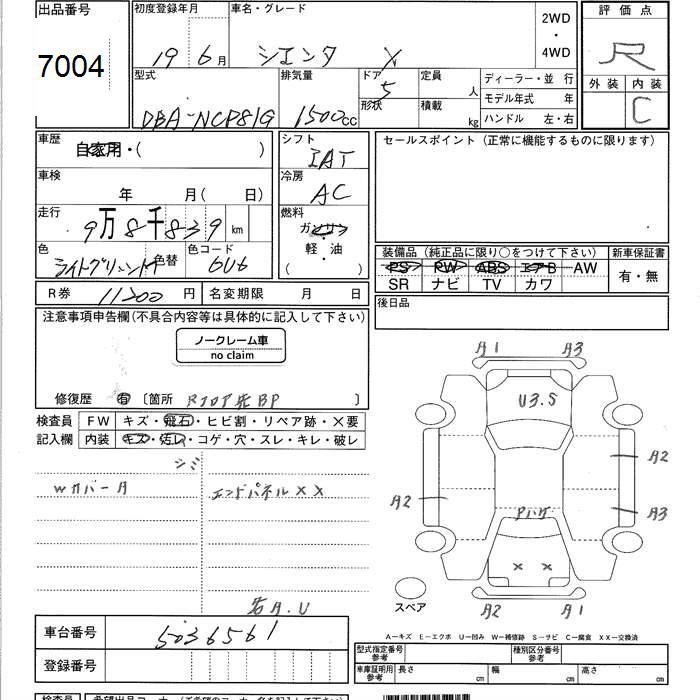 出品番号
7004
初度登録年月
19 6月
車名・グレード
シエンタ X
2WD
・
4WD
評価点
R
外装 内装
C
型式
DBA-NCP81G
排気量
1500cc
ドア
5
形状
定員
人
積載
kg
ディーラー・並 行
モデル年式 年
ハンドル 左・右
車歴
自家用・( )
車検
年 月( 日)
走行
9万8千839 km
色
ライトグリーンM
色替
色コード
6U6
シフト
IAT
冷房
AC
燃料
ガソリン
・
軽・油
( )
セールスポイント (正常に機能するものに限ります)
装備品 (純正品に限り○をつけて下さい)
PS PW ABS エアB AW
SR ナビ TV カワ
新車保証書
有・無
R券 11200 円
名変期限 月 日
後日品
注意事項申告欄(不具合内容等は具体的に記入して下さい)
ノークレーム車
no claim
修復歴 有 〔箇所 Rフロア先BP 〕
検査員
記入欄
FW キズ・飛石・ヒビ割・リペア跡・×要
内装 キズ・汚レ・コゲ・穴・スレ・キレ・破レ
シミ
Wカバー A
エンドパネル XX
A.U
A1 A3
U3.5
A2
A2
A3
Pハゲ
× ×
A2 A1
スペア
車台番号
5036561
登録番号
A-キズ E-エクボ U-凹み W-補修跡 S-サビ C-腐食 XX-交換済
型式指定番号
参考
種別区分番号
参考
車庫証明用
参考
長さ cm
幅 cm
高さ cm
検査員
希望出品コーナー (ご希望のコーナー名を記入して下さい)